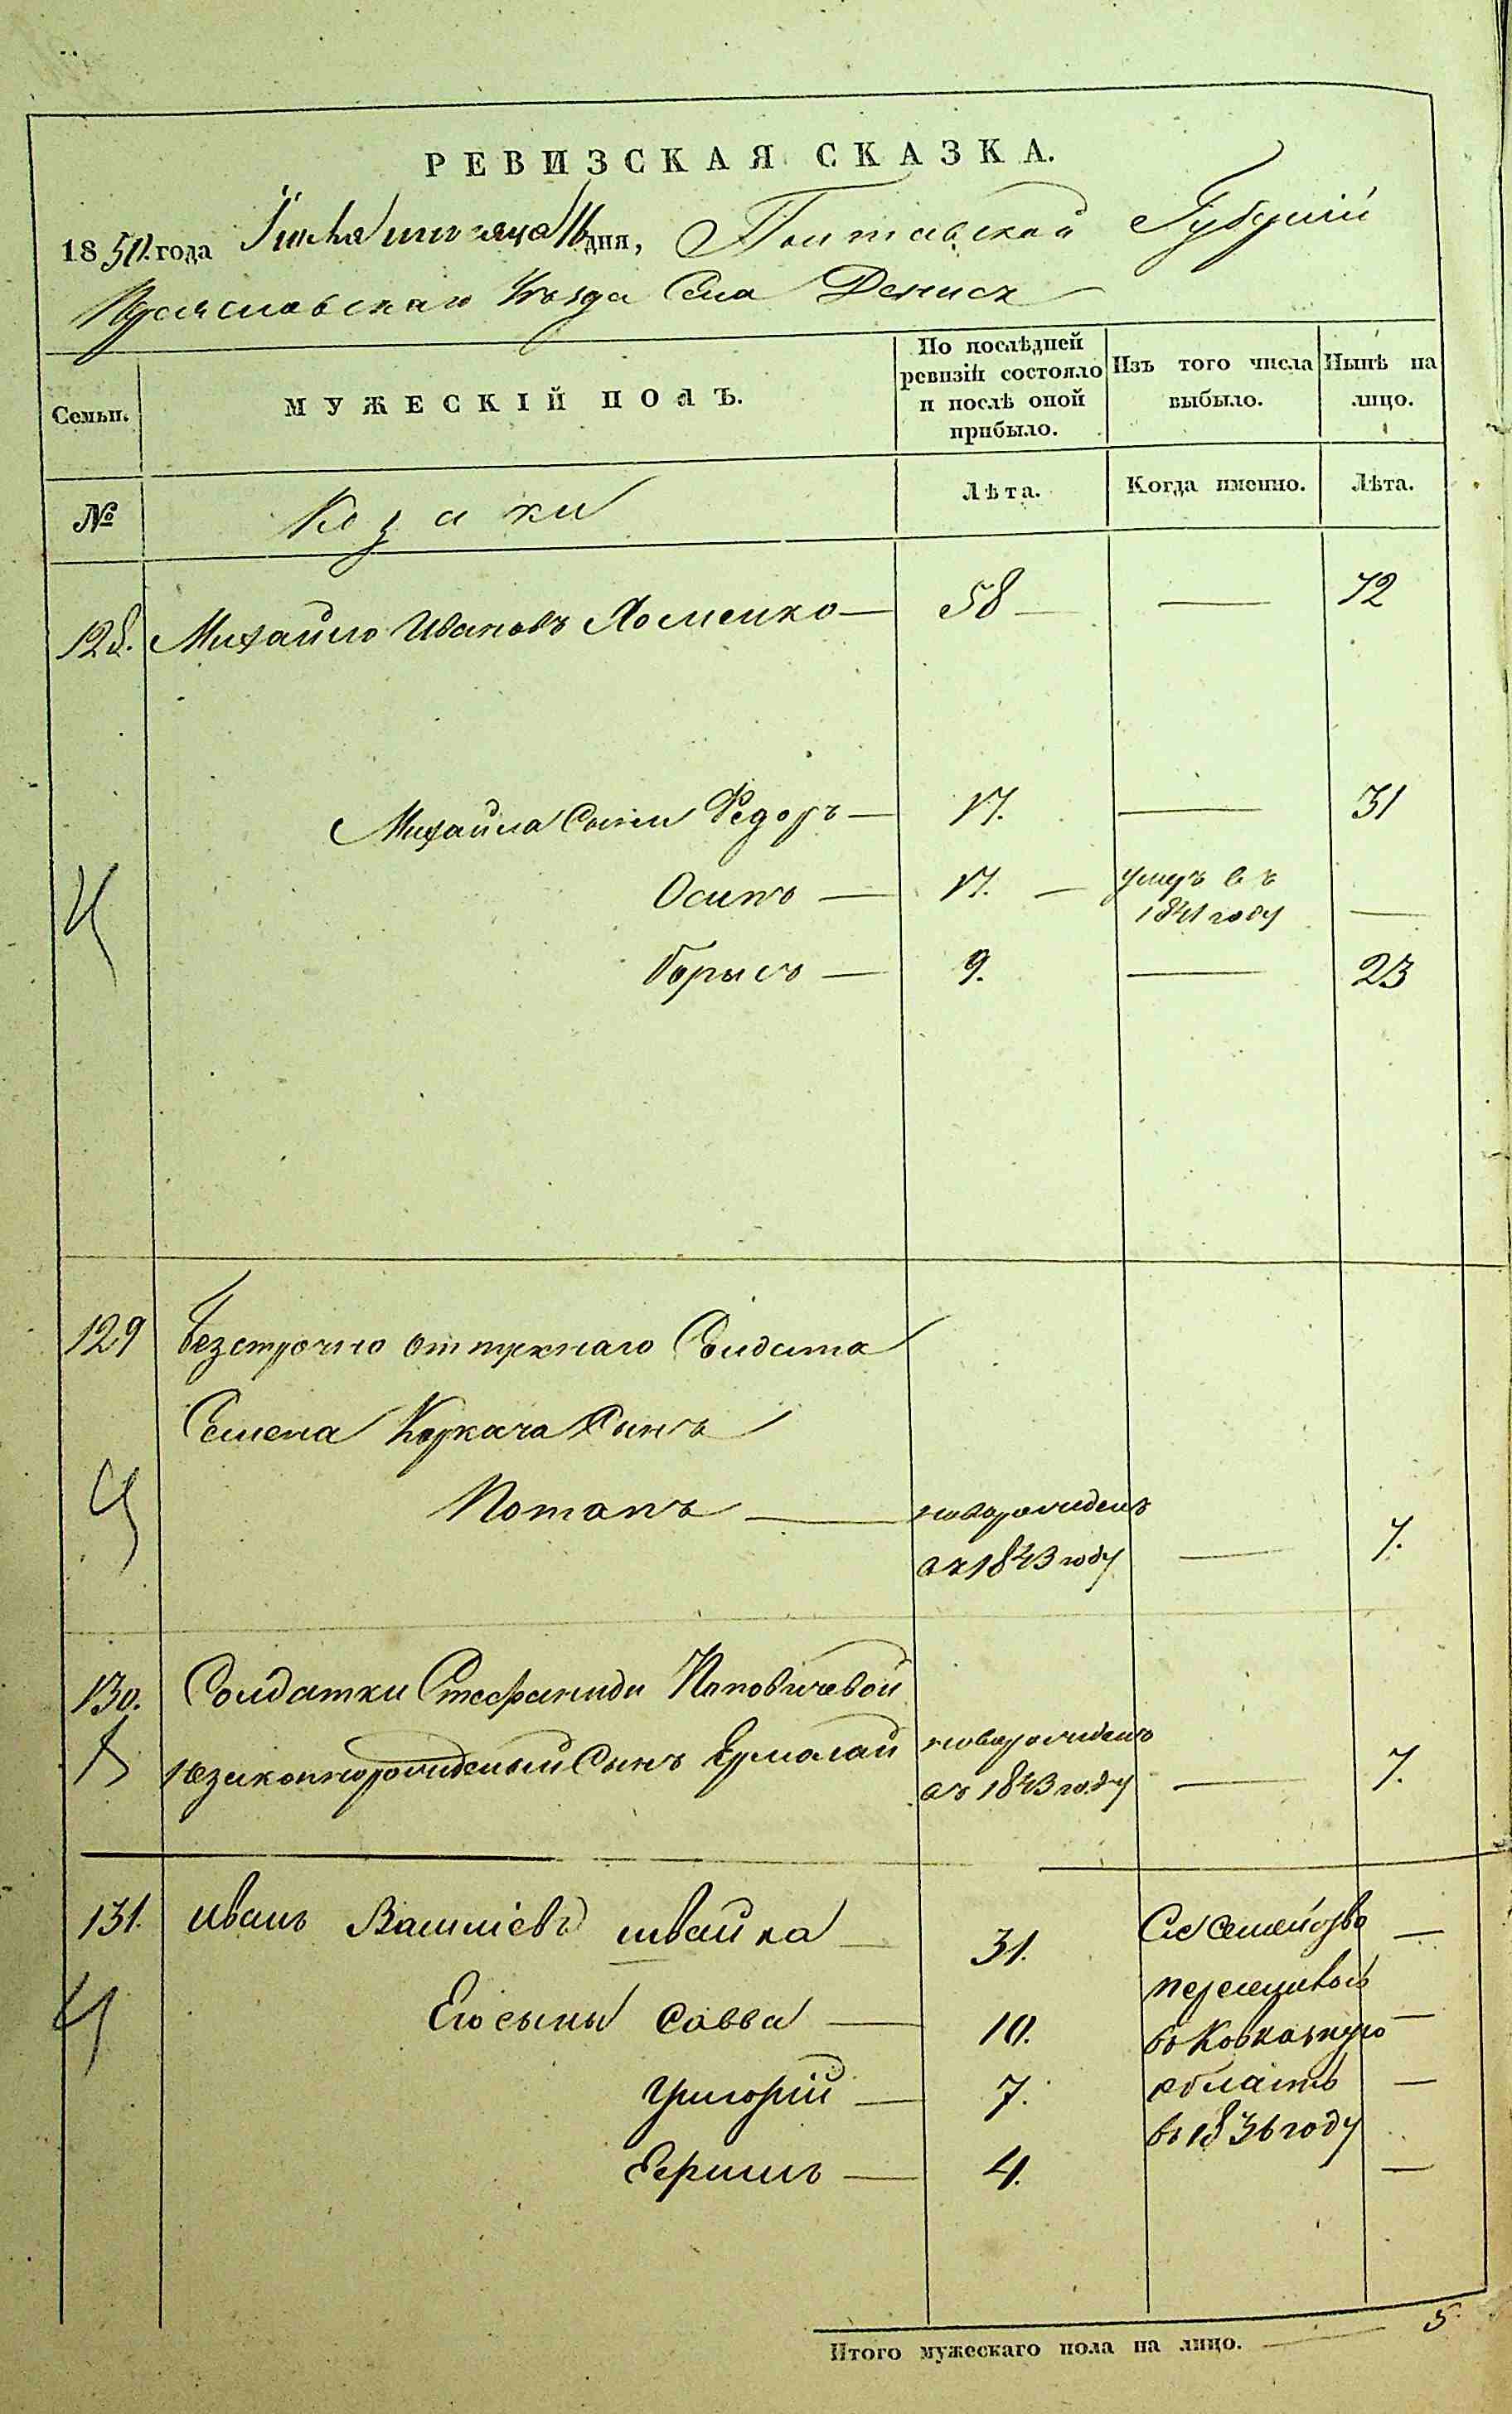 РЕВИЗСКАЯ СКАЗКА.
1850 года Июля месяца 16 дня, Полтавской Губерніи
Переяславскаго Уѣзда Села Денисъ
Семьи.
МУЖЕСКІЙ ПОЛЪ.
По послѣдней ревизіи состояло и послѣ оной прибыло.
Изъ того числа выбыло.
Нынѣ на лицо.
№
Козаки
Лѣта.
Когда именно.
Лѣта.
128. Михайло Ивановъ Хоменко — 58 — — 72
Михайла Сыны Федоръ — 17. — 31
Осипъ — 17. — умеръ въ 1841 году —
Борысъ — 9. — 23
129 Безсрочно отпускнаго Солдата
Семена Коркача Сынъ
Потапъ — новорожденъ
въ 1843 году — 7.
130. Солдатки Стефаниды Поповичевой
незаконнорожденный Сынъ Ермолай новорожденъ
въ 1843 году — 7.
131. Иванъ Василіевъ Швайка — 31. Съ Семейство —
переселился
Его сыны Савва — 10. въ Кавказкую —
Григорій — 7. область —
въ 1836 году
4. —
Итого мужескаго пола на лицо. — 5